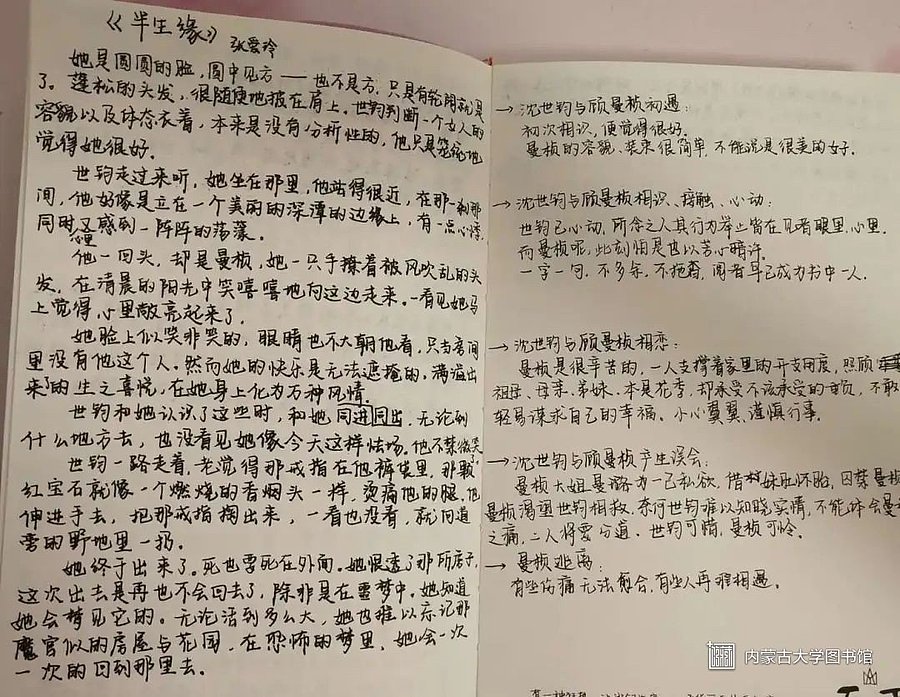 《半生缘》 张爱玲
她是圆圆的脸,圆中见方——也不是方,只是有轮廓就是
了。蓬松的头发,很随便地披在肩上。世钧判断一个女人的
容貌以及体态衣着,本来是没有分析性的,他只是笼统地
觉得她很好。
世钧走过来听,她坐在那里,他站得很近,在那一刹那
间,他好像是立在一个美丽的深潭的边缘上,有一点心悸,
同时心里又感到一阵阵的荡漾。
他一回头,却是曼桢,她一只手撩着被风吹乱的头
发,在清晨的阳光中笑嘻嘻地向这边走来。一看见她马
上觉得心里敞亮起来了。
她脸上似笑非笑的,眼睛也不大朝他看,只当房间
里没有他这个人。然而她的快乐是无法遮掩的,满溢出
来了的生之喜悦,在她身上化为万种风情。
世钧和她认识了这些时,和她同进同出,无论到
什么地方去,也没看见她像今天这样怯场。他不禁微笑了。
世钧一路走着,老觉得那戒指在他裤袋里,那颗
红宝石就像一个燃烧的香烟头一样,烫痛他的腿。他
伸进手去,把那戒指掏出来,一看也没看,就向道
旁的野地里一扔。
她终于出来了。死也要死在外面。她恨透了那所房子,
这次出去是再也不会回去了,除非是在噩梦中。她知道
她会梦见它的。无论活到多么大,她也难以忘记那
魔宫似的房屋与花园,在恐怖的梦里,她会一次
一次的回到那里去。
→ 沈世钧与顾曼桢初遇:
初次相识,便觉得很好。
曼桢的容貌、装束很简单,不能说是很美的女子。
→ 沈世钧与顾曼桢相识、接触、心动:
世钧已心动,所念之人其行为举止皆在见者眼里、心里。
而曼桢呢,此刻怕是也以芳心暗许。
一字一句,不多余,不拖沓,阅者早已成为书中一人。
→ 沈世钧与顾曼桢相恋:
曼桢是很辛苦的,一人支撑着家里的开支用度,照顾
祖母、母亲、弟妹,本是花季,却承受不该承受的重负,不敢
轻易谋求自己的幸福。小心翼翼,谨慎行事。
→ 沈世钧与顾曼桢产生误会:
曼桢大姐曼璐为一己私欲,借妹肚怀胎,囚禁曼桢
曼桢渴望世钧相救,奈何世钧难以知晓实情,不能体会曼桢
之痛,二人将要分道。世钧可惜,曼桢可怜。
→ 曼桢逃离:
有些伤痛无法愈合,有些人再难相遇。
内蒙古大学图书馆